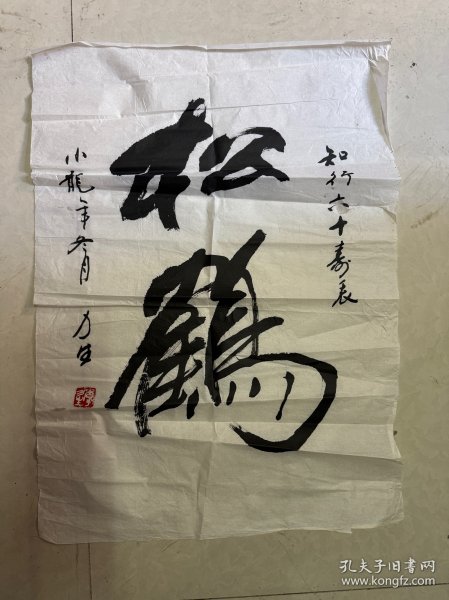 知行六十寿辰
松鹤
小龍年冬月 力生
孔夫子旧书网
www.kongfz.com